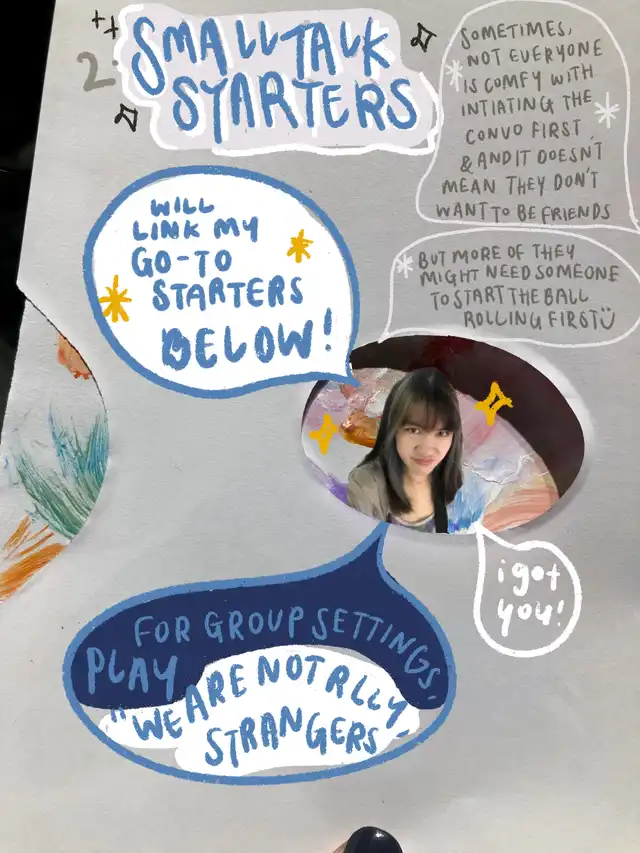 2.
SMALLTALK
STARTERS
SOMETIMES,
NOT EVERYONE
IS COMFY WITH
INTIATING THE
CONVO FIRST,
& AND IT DOESN'T
MEAN THEY DON'T
WANT TO BE FRIENDS
BUT MORE OF THEY
MIGHT NEED SOMEONE
TO START THE BALL
ROLLING FIRST
WILL
LINK MY
GO-TO
STARTERS
BELOW!
i got
you!
FOR GROUP SETTINGS,
PLAY
"WE ARE NOT RLLY
STRANGERS"